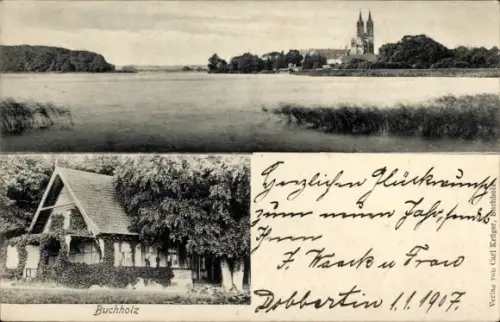 Herzlichen Glückwunsch
zum neuen Jahr, sendet
Ihnen
F. Waack u Frau
Dobbertin 1.1.1907.
Buchholz
Verlag von Carl Krüger, Buchholz